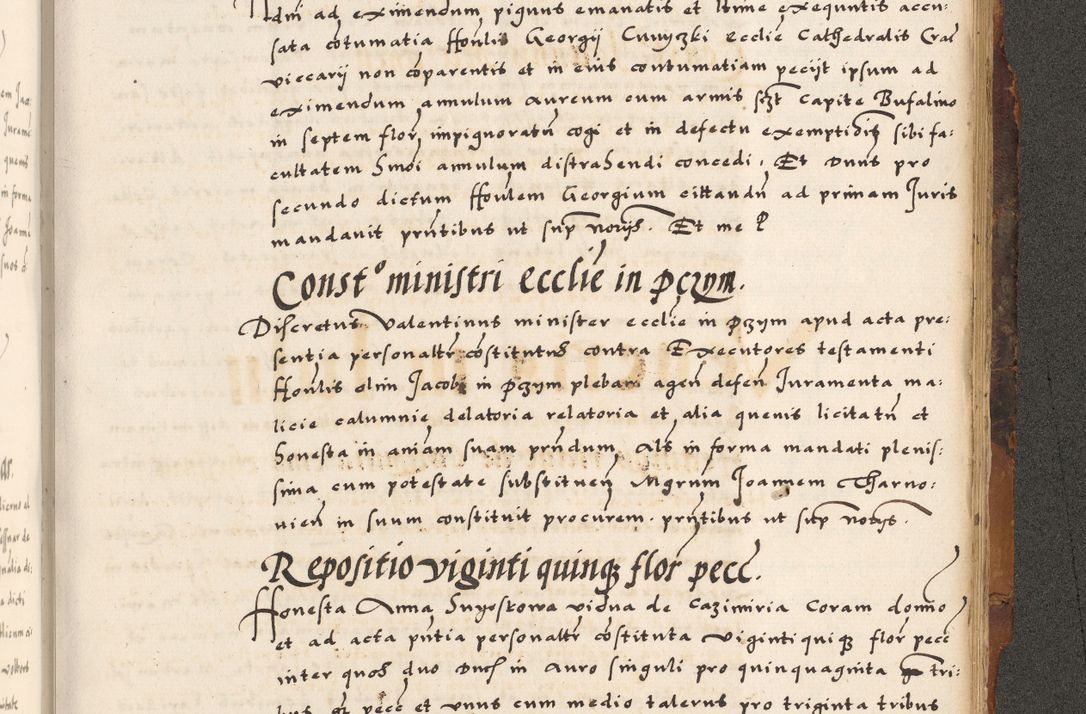 dni ad eximendum pignus emanatis et ltime exequutis accu:
sata cotumatia Honlis Georgij Cunyczki ecclie Cathedralis Crac
viccarij non coparentis et in eius contumatiam pecijt ipsum ad
eximendum annulum aureum cum armis scZt Capite Bufalino
in septem flor impignoratu cogi et in defectu exemptiois sibi fa:
cultatem Smoi annulum distrahendi concedi. Et Duns pro
secundo dictum Honlem Georgium cittandu ad primam Juris
mandavit prntibus ut sup noryς. Et me P
Const° ministri ecclie in pczym.
Discretus Valentinus minister ecclie in pczym apud acta pre:
sentia personaltr costitutus contra Executores testamenti
Honlis olim Jacobi in pczym plebani agen defen Juramenta ma:
licie calumnie delatoria relatoria et alia quevis licitatn et
honesta in aniam suam prndum. Als in forma mandati plenis:
sima cum potestate substituen Mgrum Joannem Tharno:
vien in suum constituit procurem. prntibus ut sup notys.
Repositio viginti quinqz flor pecc.
Honesta Anna Suyostowa vidua de Cazimiria Coram domo
et ad acta pntia personaltr costituta vigintiquiqz flor pecc
inter quos duo Duc in Auro singuli pro quinquaginta tri:
bus gr pecc et unus cum medio talerus pro triginta tribus